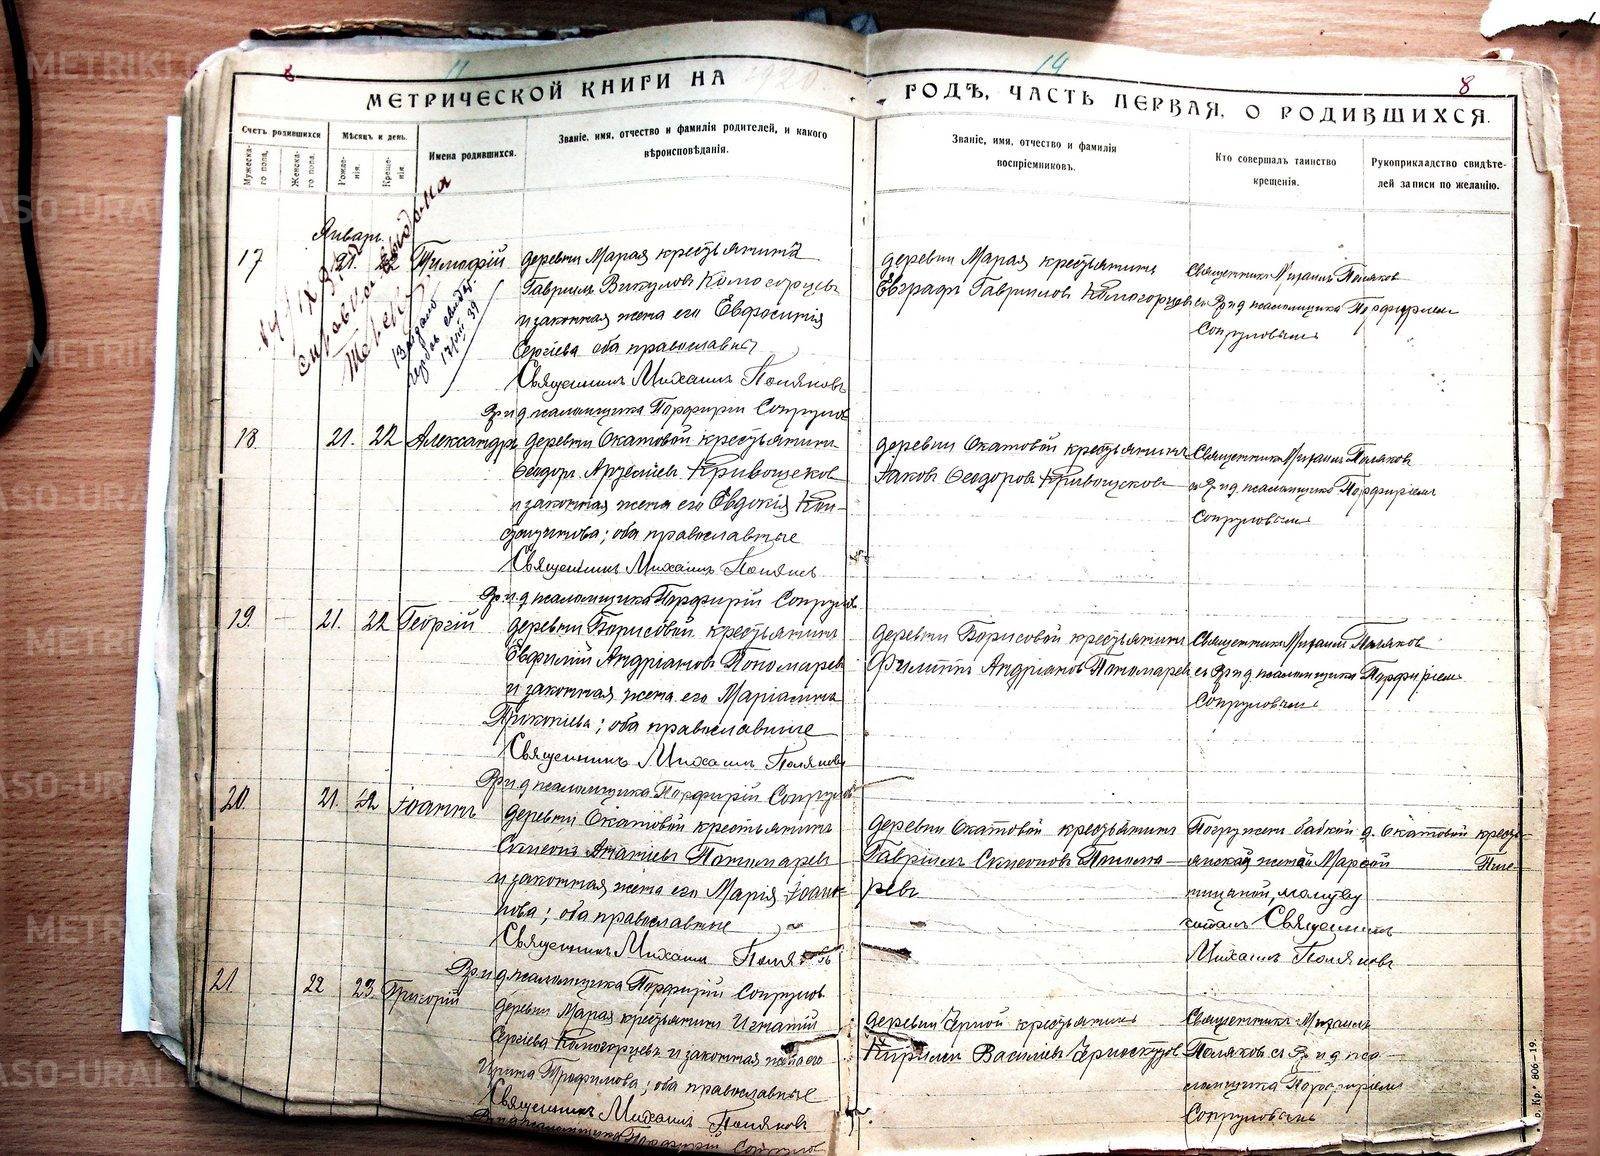 8
11
14
8
МЕТРИЧЕСКОЙ КНИГИ НА 1920
ГОДЪ, ЧАСТЬ ПЕРВАЯ, О РОДИВШИХСЯ.
Счетъ родившихся
Мужеска-го пола.
Женска-го пола.
Мѣсяцъ и день.
Рожде-нія.
Креще-нія.
Имена родившихся.
Званіе, имя, отчество и фамилія родителей, и какого
вѣроисповѣданія.
Званіе, имя, отчество и фамилія
воспріемниковъ.
Кто совершалъ таинство
крещенія.
Рукоприкладство свидѣте-
лей записи по желанію.
Январь
17 21. 22 Тимофій
деревни Марая крестьянинъ
Гавриилъ Викуловъ Комогорцевъ
и законная жена его Евфросинія
Сергіева оба православны
Священникъ Михаилъ Поляковъ
Вр и д псаломщика Порфирій Сопрунов
деревни Марая крестьянинъ
Евграфъ Гаврииловъ Комогорцевъ
Священникъ Михаилъ Поляков
съ Вр и д псаломщика Порфиріем
Сопруновым
18. 21. 22 Александръ
деревни Скатовой крестьянинъ
Ѳеодоръ Арсеніевъ Кривощеков
и законная жена его Евдокія Кон-
; оба православные
Священникъ Михаилъ Поляковъ
Вр и д псаломщика Порфирій Сопрунов
деревни Скатовой крестьянинъ
Іаковъ Ѳеодоровъ Кривощековъ
Священникъ Михаилъ Поляков
съ Вр и д псаломщика Порфиріем
Сопруновым
19. — 21. 22 Георгій
деревни Борисовой крестьянинъ
Евфимій Андріановъ Пономарев
и законная жена его
Прокопіева; оба православные
Священникъ Михаилъ Поляковъ
Вр и д псаломщика Порфирій Сопрунов
деревни Борисовой крестьянинъ
Филиппъ Андріановъ Пономарев
Священникъ Михаилъ Поляков
съ Вр и д псаломщика Порфиріем
Сопруновым
20. 21. 22 Іоаннъ
деревни Скатовой крестьянинъ
Симеонъ Ананіевъ Пономарев
и законная жена его Марія Іоан-
нова; оба православные
Священникъ Михаилъ Поляковъ
Вр и д псаломщика Порфирій Сопрунов
деревни Скатовой крестьянинъ
Гавріилъ Симеоновъ Понома-
ревъ
Погружен бабкой д. Скатовой кресть-
янской женой
молитву
читалъ Священникъ
Михаилъ Поляковъ
21 22 23. Григорій
деревни Марая крестьянинъ Игнатій
Сергіевъ Комогорцевъ и законная жена его
Ирина Трофимова; оба православные
Священникъ Михаилъ Поляковъ
Вр и д псаломщика Порфирій Сопрунов
деревни Черной крестьянинъ
Кириллъ Василіевъ Черноскутов
Священникъ Михаилъ
Поляков съ Вр и д пса-
ломщика Порфиріем
Сопруновымъ
о. Кр. 806—19.